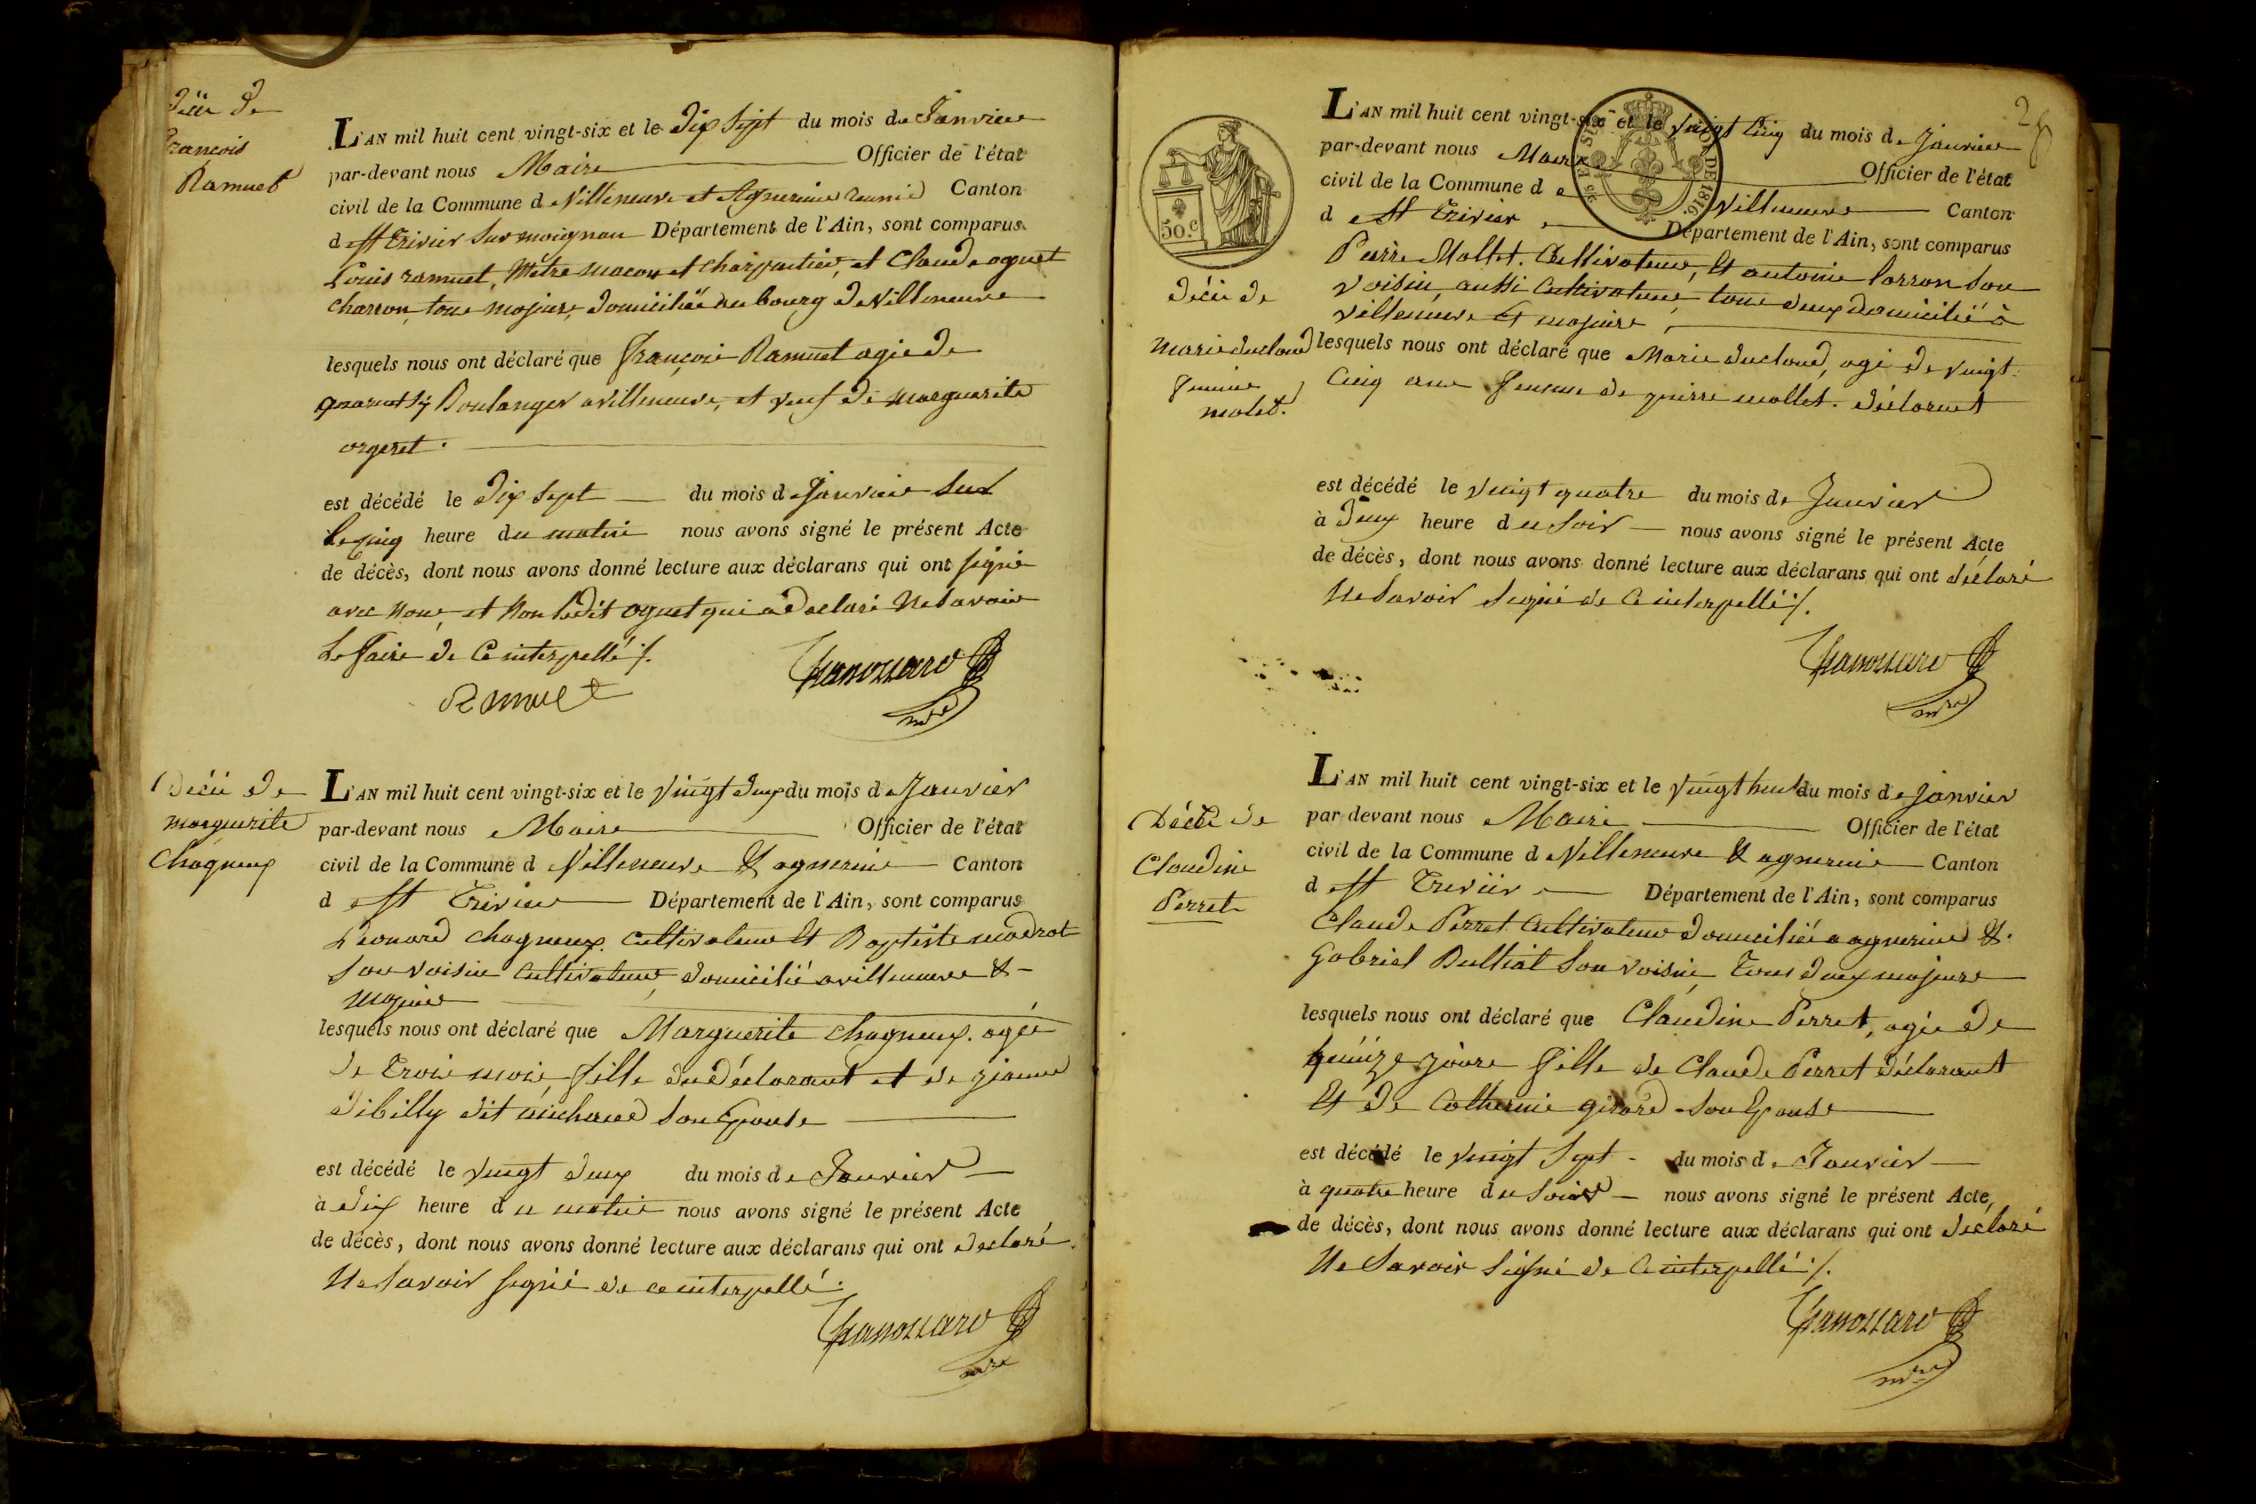 Décès de
François
Ramuet
L'AN mil huit cent vingt-six et le dix sept du mois de Janvier
par-devant nous Maire Officier de l'état
civil de la Commune de Villeneuve et Agnereins reunie Canton
de St Trivier Sur moignan Département de l'Ain, sont comparus
Louis ramuet, Mètre macon et charpentier, et Claude oguet
charron, tous majeurs, domicilié au bourg de Villeneuve
lesquels nous ont déclaré que François Ramuet agie de
Boulanger a villeneuve, et veuf de marguerite
orgeret.
est décédé le dix sept du mois de Janvier sur
les cinq heure du matin nous avons signé le présent Acte
de décès, dont nous avons donné lecture aux déclarans qui ont signé
avec nous, et non ledit oguet qui a declaré ne savoir
le faire de ce interpellé ./.
Ramuet
mre
Décès de
marguerite
Chagneux
L'AN mil huit cent vingt-six et le vingt deux du mois de Janvier
par-devant nous Maire Officier de l'état
civil de la Commune de Villeneuve & agnereins Canton
de St Trivier Département de l'Ain, sont comparus
Leonard chagneux cultivateur et Baptiste madrot
son voisin cultivateur, domicilié a villeneuve &
majeurs
lesquels nous ont déclaré que Marguerite chagneux. agée
de trois mois, fille du déclarant et de
dit son Epouse
est décédé le vingt deux du mois de Janvier
à dix heure du matin nous avons signé le présent Acte
de décès, dont nous avons donné lecture aux déclarans qui ont declaré
ne savoir signé de ce interpellé.
mre
28
50.c
L'AN mil huit cent vingt-six et le vingt cinq du mois de Janvier
par-devant nous Maire Officier de l'état
civil de la Commune de Villeneuve Canton
de St Trivier Département de l'Ain, sont comparus
Pierre Mollet. Cultivateur, et antoine larron son
voisin, aussi cultivateur, tous deux domicilié à
villeneuve et majeurs,
décès de
marie ducloud
femme
molet.
lesquels nous ont déclaré que Marie ducloud, agé de vingt
cinq ans femme de pierre mollet. déclarant
est décédé le vingt quatre du mois de Janvier
à deux heure du soir nous avons signé le présent Acte
de décès, dont nous avons donné lecture aux déclarans qui ont déclaré
ne savoir signé de ce interpellé ./.
mre
Décès de
Claudine
Perret
L'AN mil huit cent vingt-six et le vingt huit du mois de janvier
par devant nous Maire Officier de l'état
civil de la Commune de Villeneuve & agnereins Canton
de St Trivier Département de l'Ain, sont comparus
Claude Perret Cultivateur domicilié a agnereins &.
Gabriel Bulliat son voisin, tous deux majeurs
lesquels nous ont déclaré que Claudine Perret, agée de
quinze jours fille de Claude Perret déclarant
et de Catherine girard son Epouse
est décédé le vingt sept du mois de Janvier
à quatre heure du soir nous avons signé le présent Acte,
de décès, dont nous avons donné lecture aux déclarans qui ont déclaré
ne savoir signé de ce interpellé ./.
mre